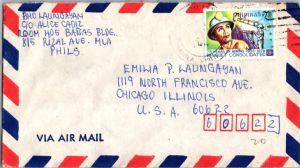 BHO LAUNGAYAN
C/O ALICE CADIZ
ROOM 405 BAÑAS BLDG.
815 RIZAL AVE. MLA
PHILS
EMILIA P. LAUNGAYAN
1119 NORTH FRANCISCO AVE.
CHICAGO ILLINOIS
U. S. A. 60622
60622
VIA AIR MAIL